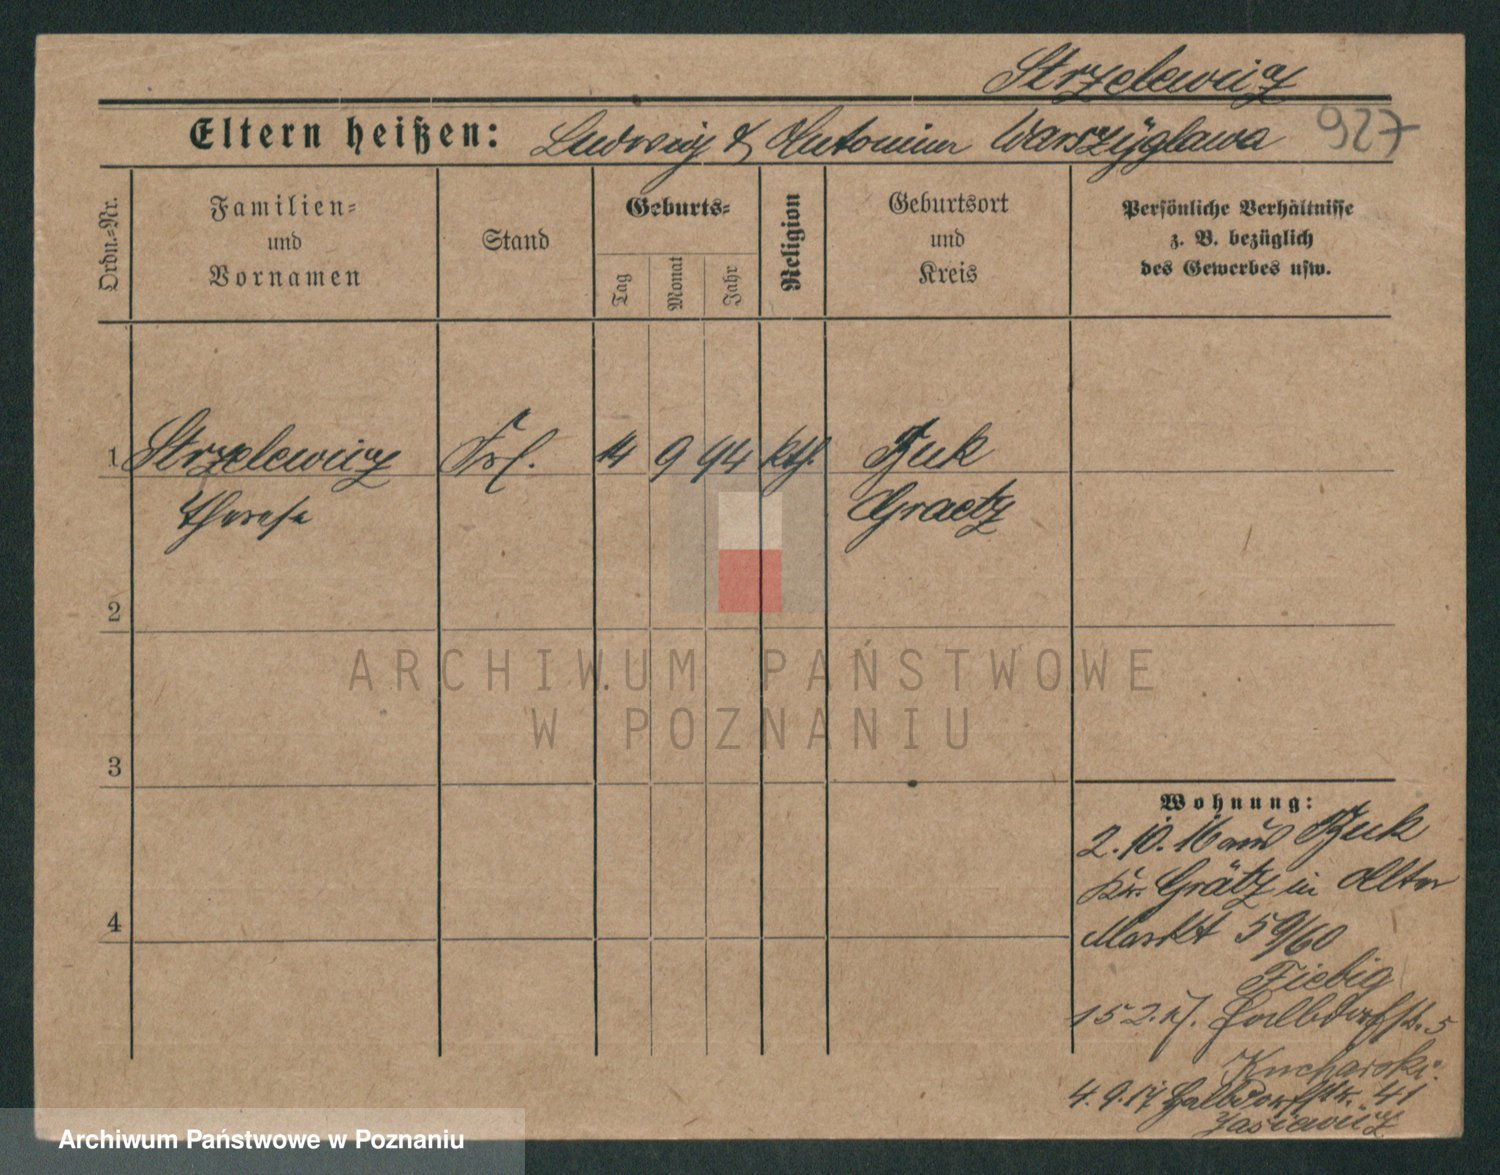 Strzelewicz
Eltern heißen: Ludwig & Antonina Warszyglawa 927
Ordn.-Nr.
Familien-
und
Vornamen
Stand
Geburts-
Tag
Monat
Jahr
Religion
Geburtsort
und
Kreis
Persönliche Verhältnisse
z. B. bezüglich
des Gewerbes usw.
1 Strzelewicz Frl. 14 9 94 kth. Buk
Therese Graetz
2
ARCHIWUM PAŃSTWOWE
W POZNANIU
3
Wohnung:
2.10.16 aus Buk
Kr. Grätz in Alter
4
Markt 59/60
Fiebig
15 2. 17. Halbdorfstr. 5
Kucharski.
4.9.17 Halbdorfstr. 41
Jasiewicz
Archiwum Państwowe w Poznaniu